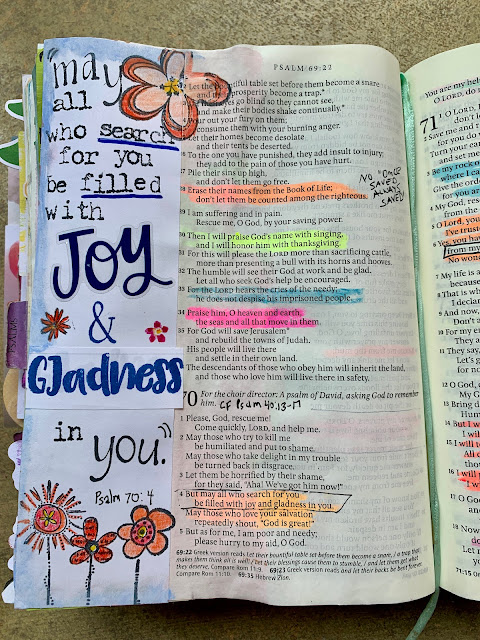 "may
all
who search
for you
be filled
with
JOY
&
Gladness
in
you."
Psalm 70:4
PSALM 69:22
22 Let the bountiful table set before them become a snare
and their prosperity become a trap.*
their eyes go blind so they cannot see,
and make their bodies shake continually.*
your out your fury on them;
consume them with your burning anger.
Let their homes become desolate
and their tents be deserted.
26 To the one you have punished, they add insult to injury;
they add to the pain of those you have hurt.
27 Pile their sins up high,
and don't let them go free.
28 Erase their names from the Book of Life;
don't let them be counted among the righteous.
NO "ONCE
SAVED,
ALWAYS
SAVED"
29 I am suffering and in pain.
Rescue me, O God, by your saving power.
30 Then I will praise God's name with singing,
and I will honor him with thanksgiving.
31 For this will please the LORD more than sacrificing cattle,
more than presenting a bull with its horns and hooves.
32 The humble will see their God at work and be glad.
Let all who seek God's help be encouraged.
33 For the LORD hears the cries of the needy;
he does not despise his imprisoned people.
34 Praise him, O heaven and earth,
the seas and all that move in them.
35 For God will save Jerusalem*
and rebuild the towns of Judah.
His people will live there
and settle in their own land.
36 The descendants of those who obey him will inherit the land,
and those who love him will live there in safety.
70 For the choir director: A psalm of David, asking God to remember
him. CF Psalm 40:13-17
1 Please, God, rescue me!
Come quickly, LORD, and help me.
2 May those who try to kill me
be humiliated and put to shame.
May those who take delight in my trouble
be turned back in disgrace.
3 Let them be horrified by their shame,
for they said, "Aha! We've got him now!"
4 But may all who search for you
be filled with joy and gladness in you.
May those who love your salvation
repeatedly shout, "God is great!"
5 But as for me, I am poor and needy;
please hurry to my aid, O God.
69:22 Greek version reads Let their bountiful table set before them become a snare, / a trap that
makes them think all is well. / Let their blessings cause them to stumble, / and let them get what
they deserve. Compare Rom 11:9. 69:23 Greek version reads and let their backs be bent forever.
Compare Rom 11:10. 69:35 Hebrew Zion.
You are my help
O LORD, do
71
1 O LORD,
don't le
2 Save me and
Turn your ear
and set me
3 Be my rock o
where I ca
Give the orde
for you ar
4 My God, resc
from the
5 O Lord, you
I've trust
6 Yes, you ha
from my
No wond
7 My life is a
because
8 That is wh
I declar
9 And now,
Don't a
10 For my e
They a
11 They say,
Let's g
for no
12 O God,
My
13 Bring d
14